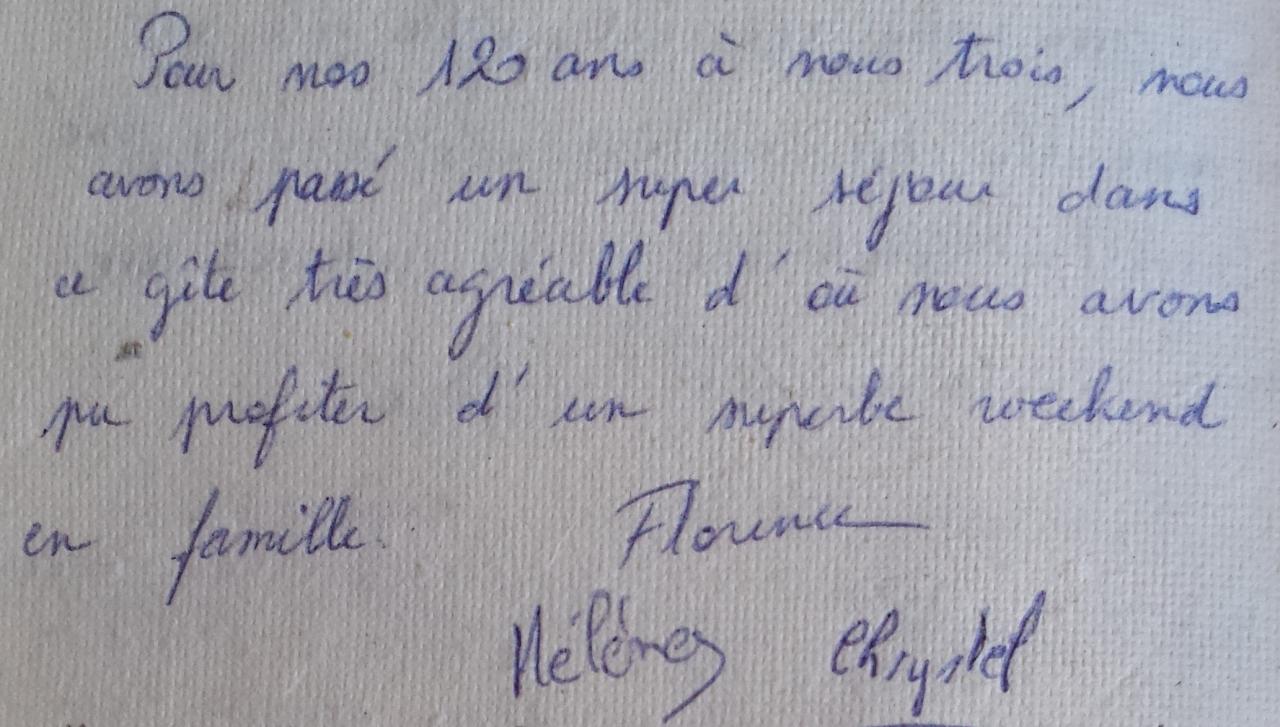 Pour nos 120 ans à nous trois, nous
avons passé un super séjour dans
ce gîte très agréable d'où nous avons
pu profiter d'un superbe weekend
en famille. Florence
Hélène Chrystel